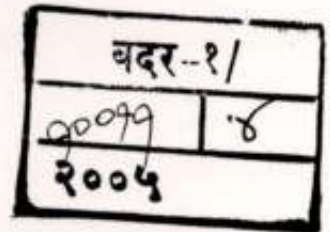 बदर--१/
१००११ ४
२००५